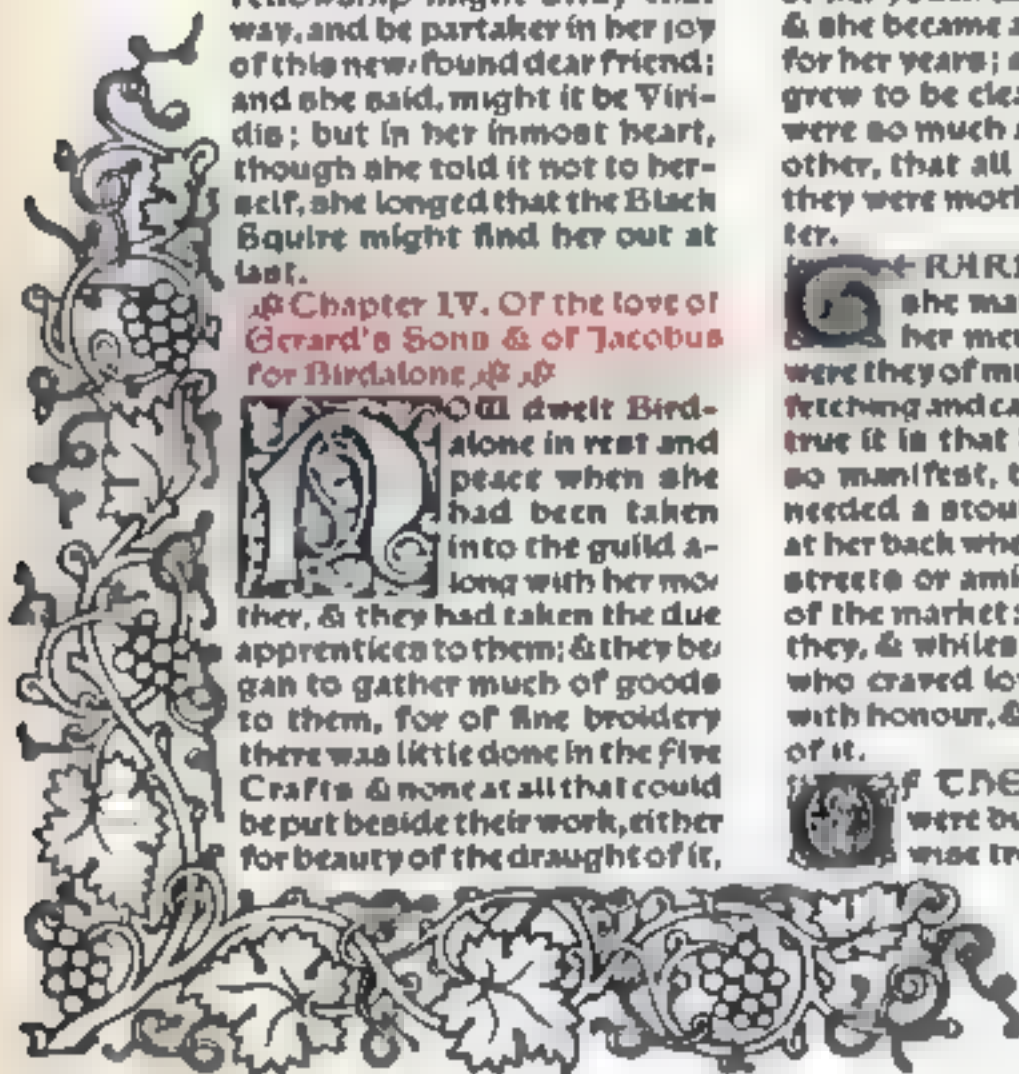 way, and be partaker in her joy
of this new-found dear friend;
and she said, might it be Viri-
dis; but in her inmost heart,
though she told it not to her-
self, she longed that the Black
Squire might find her out at
last.
Chapter IV. Of the love of
Gerard's Sons & of Jacobus
for Birdalone
NOW dwelt Bird-
alone in rest and
peace when she
had been taken
into the guild a-
long with her mo-
ther, & they had taken the due
apprentices to them; & they be-
gan to gather much of goods
to them, for of fine broidery
there was little done in the Five
Crafts & none at all that could
be put beside their work, either
for beauty of the draught of it,
& she became
for her years;
grew to be
were so much
other, that all
they were
ter.
she
her
were they of
fetching and
true it is that
so manifest,
needed a
at her back
streets or
of the market
they, & whiles
who craved
with honour, &
of it.
OF THE
were
wise